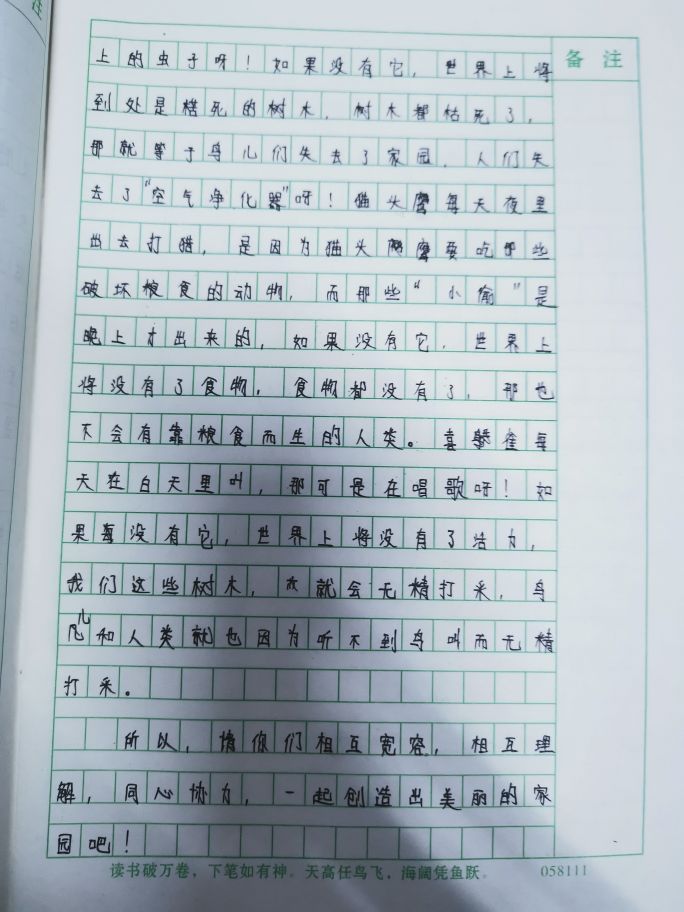 备 注
上的虫子呀！如果没有它，世界上将
到处是枯死的树木，树木都枯死了，
那就等于鸟儿们失去了家园，人们失
去了“空气净化器”呀！猫头鹰每天夜里
出去打猎，是因为猫头鹰要吃那些
破坏粮食的动物，而那些“小偷”是
晚上才出来的，如果没有它，世界上
将没有了食物，食物都没有了，那也
不会有靠粮食而生的人类。喜鹊每
天在白天里叫，那可是在唱歌呀！如
果每没有它，世界上将没有了活力，
我们这些树木，就会无精打采，鸟
儿和人类就也因为听不到鸟叫而无精
打采。
所以，请你们相互宽容，相互理
解，同心协力，一起创造出美丽的家
园吧！
读书破万卷，下笔如有神。天高任鸟飞，海阔凭鱼跃。 058111